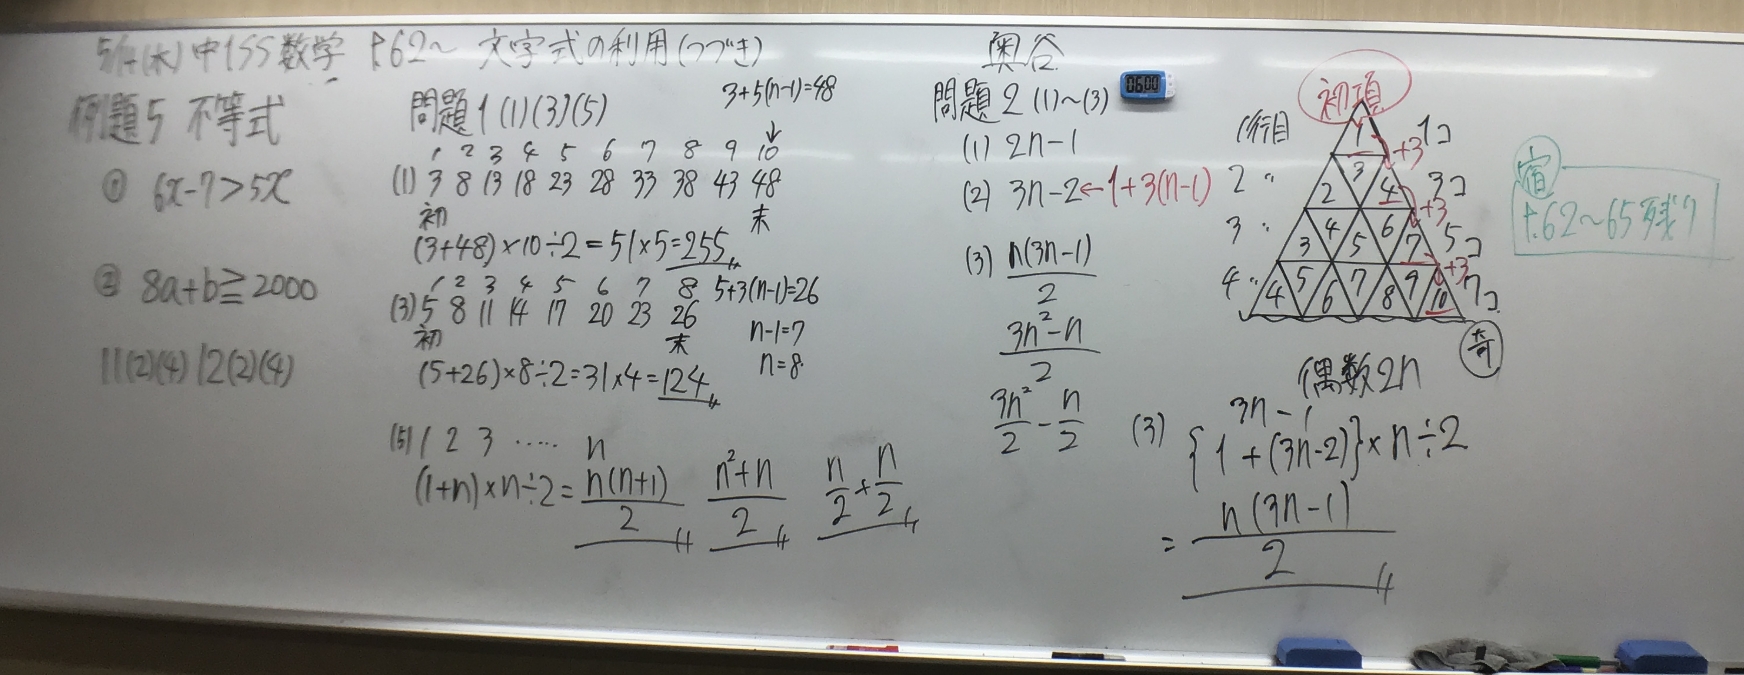 5/14(木) 中1SS 数学 P.62〜 文字式の利用(つづき)
奥谷
例題5 不等式
① 6x-7>5x
② 8a+b≧2000
11(2)(4) 12(2)(4)
問題1 (1)(3)(5)
3+5(n-1)=48
↓
1 2 3 4 5 6 7 8 9 10
(1) 3 8 13 18 23 28 33 38 43 48
初 末
(3+48)×10÷2=51×5=255
1 2 3 4 5 6 7 8
(3) 5 8 11 14 17 20 23 26
初 末
5+3(n-1)=26
n-1=7
n=8
(5+26)×8÷2=31×4=124
(5) 1 2 3 ‥‥‥ n
(1+n)×n÷2=n(n+1)/2 n²+n/2 n/2+n/2
問題2 (1)〜(3)
06:00
(1) 2n-1
(2) 3n-2←1+3(n-1)
(3) n(3n-1)/2
3n²-n/2
3n²/2-n/2
初項
1行目 1 1コ
+3
2 〃 2 3 4 3コ
+3
3 〃 3 4 5 6 7 5コ
+3
4 〃 4 5 6 7 8 9 10 7コ
奇
偶数2n
3n-1
(3) {1+(3n-2)}×n÷2
=n(3n-1)/2
宿
P.62〜65残り